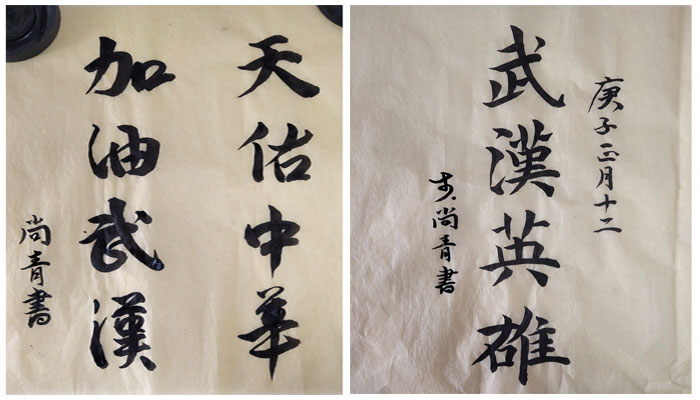 天佑中華
加油武漢
尚青書
庚子正月十二
武漢英雄
尚青書